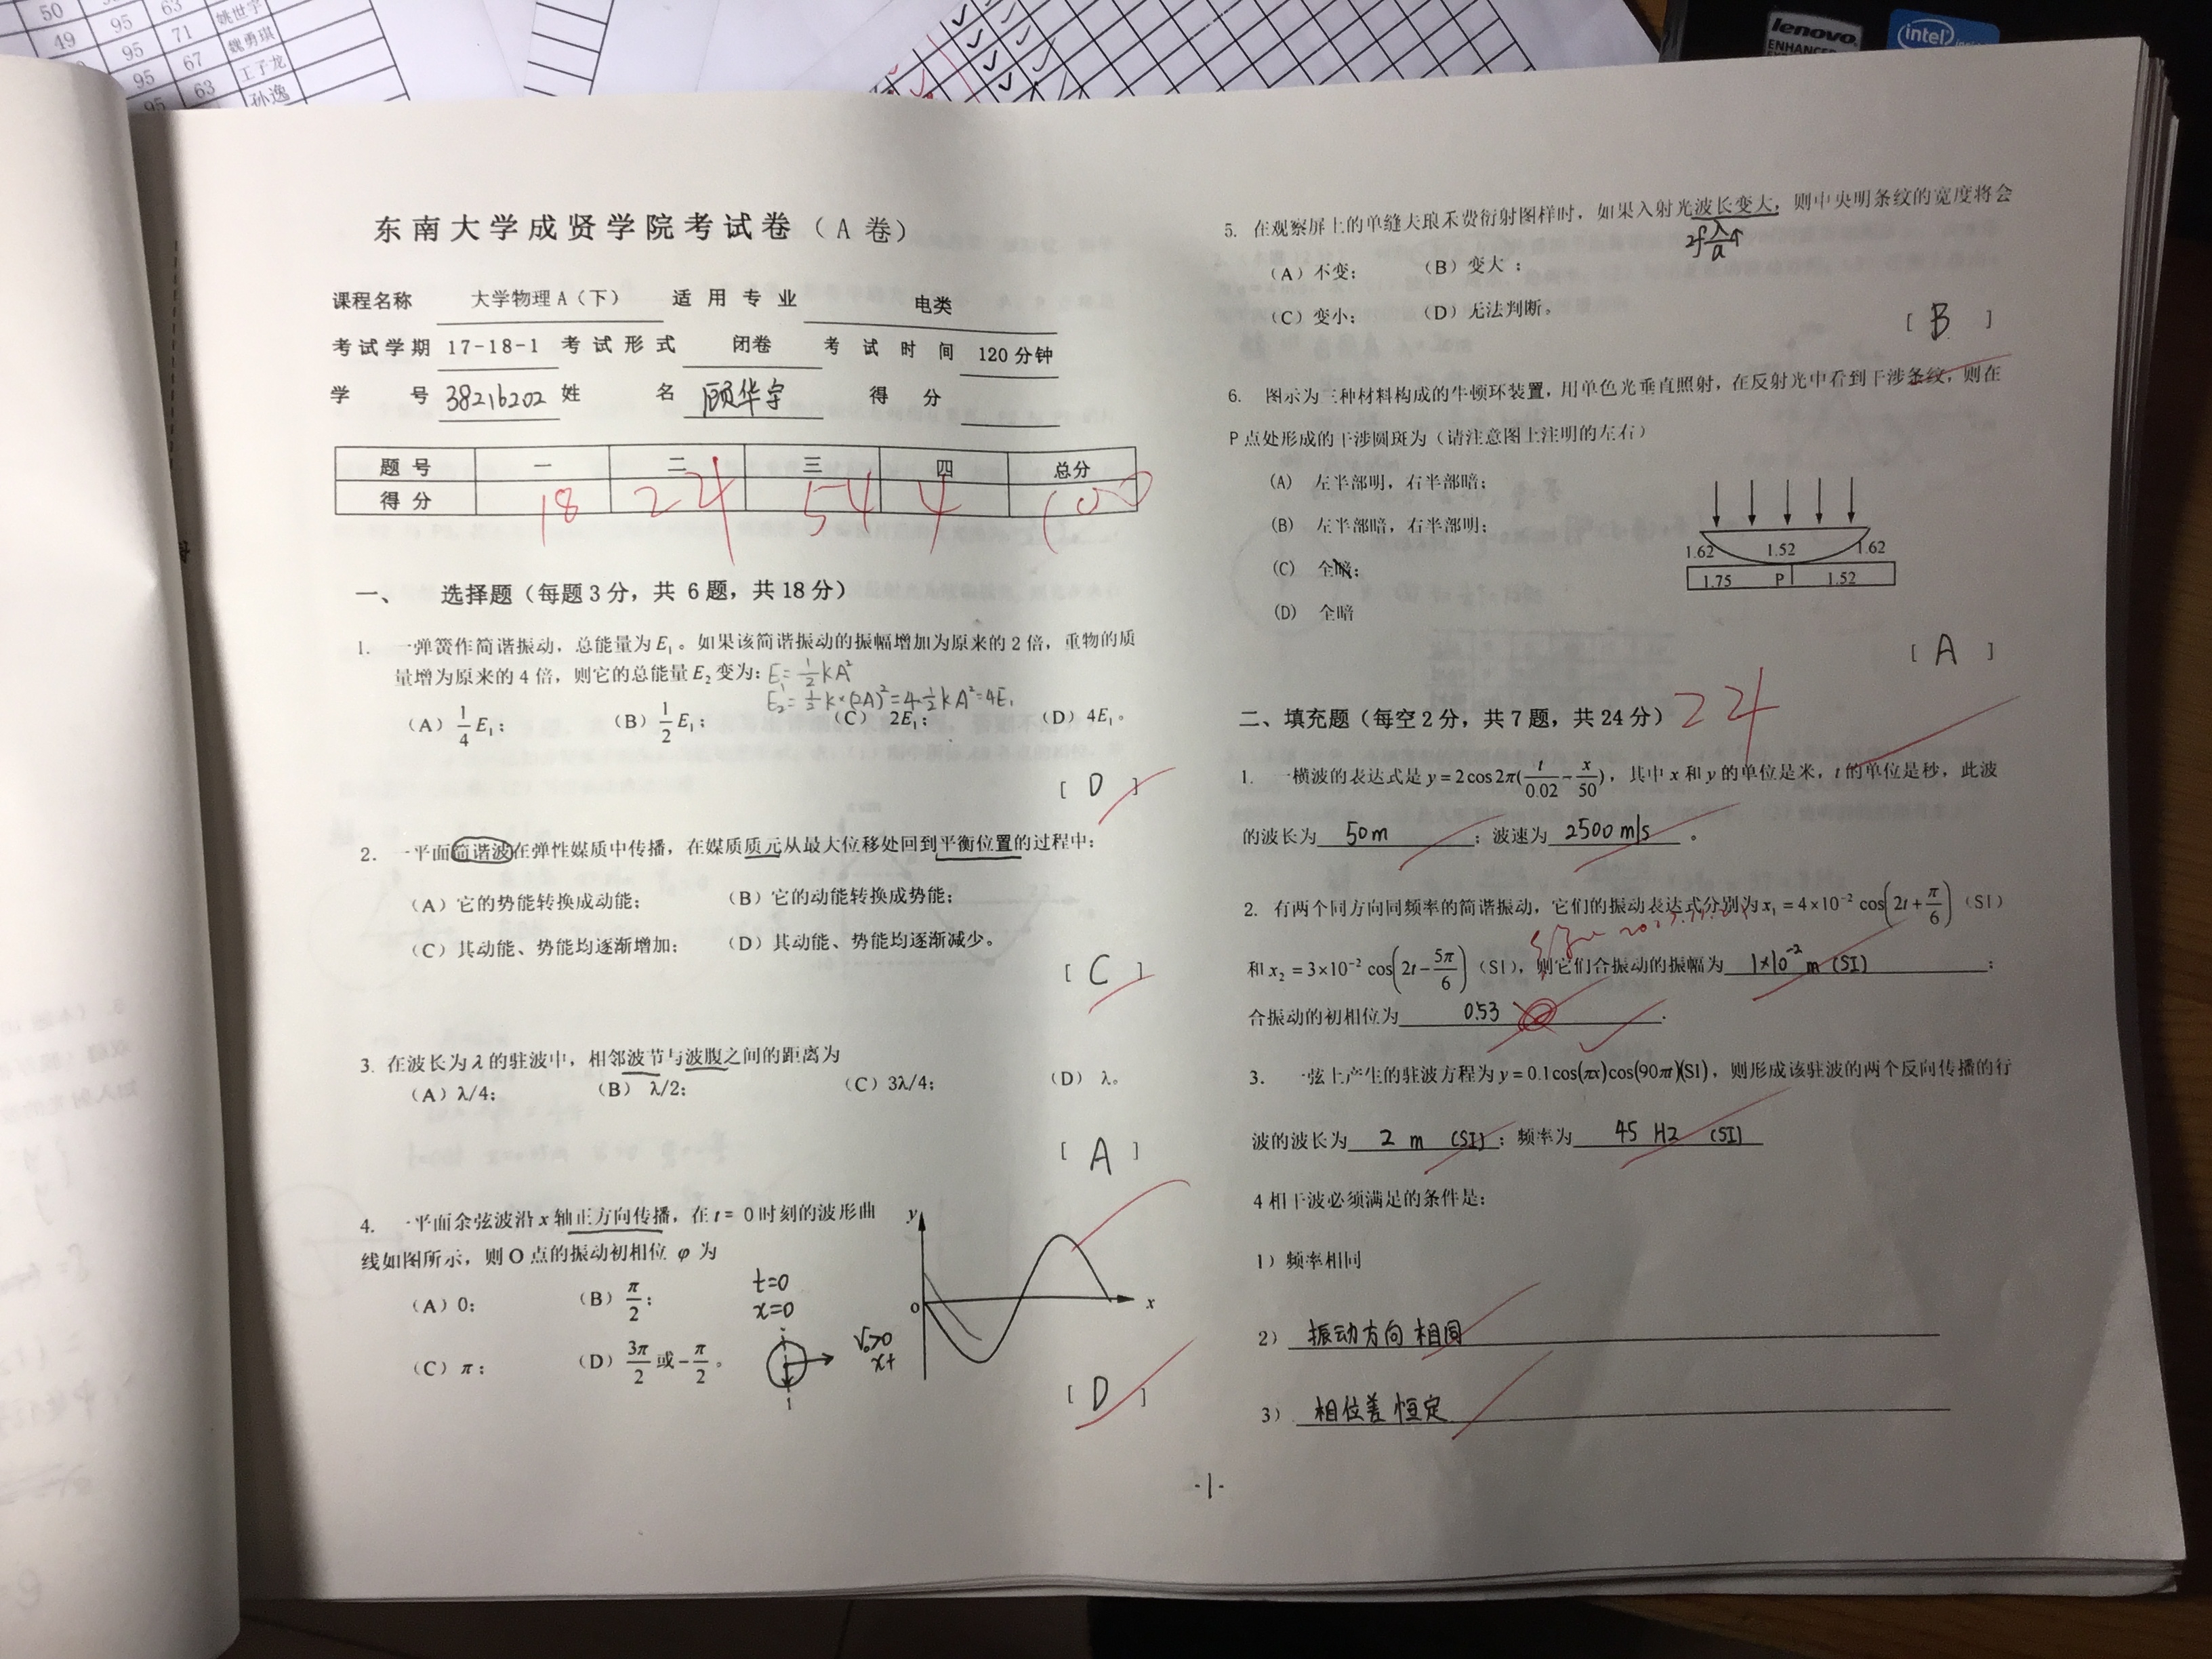 50
49 95 63 姚世宇
95 71 魏勇琪
95 67 王子龙
95 63 孙逸
lenovo
ENHANCED
intel
东南大学成贤学院考试卷（A 卷）
课程名称 大学物理 A（下） 适用专业 电类
考试学期 17-18-1 考试形式 闭卷 考试时间 120 分钟
学号 38216202 姓名 顾华宇 得分
题号 一 二 三 四 总分
得分 18 24 54 4 100
一、 选择题（每题 3 分，共 6 题，共 18 分）
1. 一弹簧作简谐振动，总能量为 E₁。如果该简谐振动的振幅增加为原来的 2 倍，重物的质
量增为原来的 4 倍，则它的总能量 E₂ 变为：E₁=½kA²
E₂=½k×(2A)²=4·½kA²=4E₁
（A）1/4 E₁； （B）1/2 E₁； （C） 2E₁； （D）4E₁。
[ D ]
2. 一平面简谐波在弹性媒质中传播，在媒质质元从最大位移处回到平衡位置的过程中：
（A）它的势能转换成动能； （B）它的动能转换成势能；
（C）其动能、势能均逐渐增加； （D）其动能、势能均逐渐减少。
[ C ]
3. 在波长为 λ 的驻波中，相邻波节与波腹之间的距离为
（A）λ/4； （B） λ/2； （C）3λ/4； （D） λ。
[ A ]
4. 一平面余弦波沿 x 轴正方向传播，在 t = 0 时刻的波形曲
线如图所示，则 O 点的振动初相位 φ 为
（A）0； （B）π/2； t=0
x=0
（C）π； （D）3π/2 或 -π/2 。 v₀>0
x+
y
o x
[ D ]
5. 在观察屏上的单缝夫琅禾费衍射图样时，如果入射光波长变大，则中央明条纹的宽度将会
2f λ/a ↑
（A）不变； （B）变大；
（C）变小； （D）无法判断。
[ B ]
6. 图示为三种材料构成的牛顿环装置，用单色光垂直照射，在反射光中看到干涉条纹，则在
P 点处形成的干涉圆斑为（请注意图上注明的左右）
(A) 左半部明，右半部暗；
(B) 左半部暗，右半部明；
(C) 全；
(D) 全暗
1.62 1.52 1.62
1.75 P 1.52
[ A ]
二、填充题（每空 2 分，共 7 题，共 24 分） 24
1. 一横波的表达式是 y = 2cos2π(t/0.02 - x/50)，其中 x 和 y 的单位是米，t 的单位是秒，此波
的波长为 50m ；波速为 2500 m/s 。
2. 有两个同方向同频率的简谐振动，它们的振动表达式分别为 x₁ = 4×10⁻² cos(2t + π/6)（SI）
和 x₂ = 3×10⁻² cos(2t - 5π/6)（SI），则它们合振动的振幅为 1×10⁻² m (SI) ；
合振动的初相位为 0.53 .
3. 一弦上产生的驻波方程为 y = 0.1cos(πx)cos(90πt)(SI)，则形成该驻波的两个反向传播的行
波的波长为 2 m (SI)；频率为 45 Hz (SI)
4 相干波必须满足的条件是：
1）频率相同
2） 振动方向相同
3） 相位差恒定
-1-